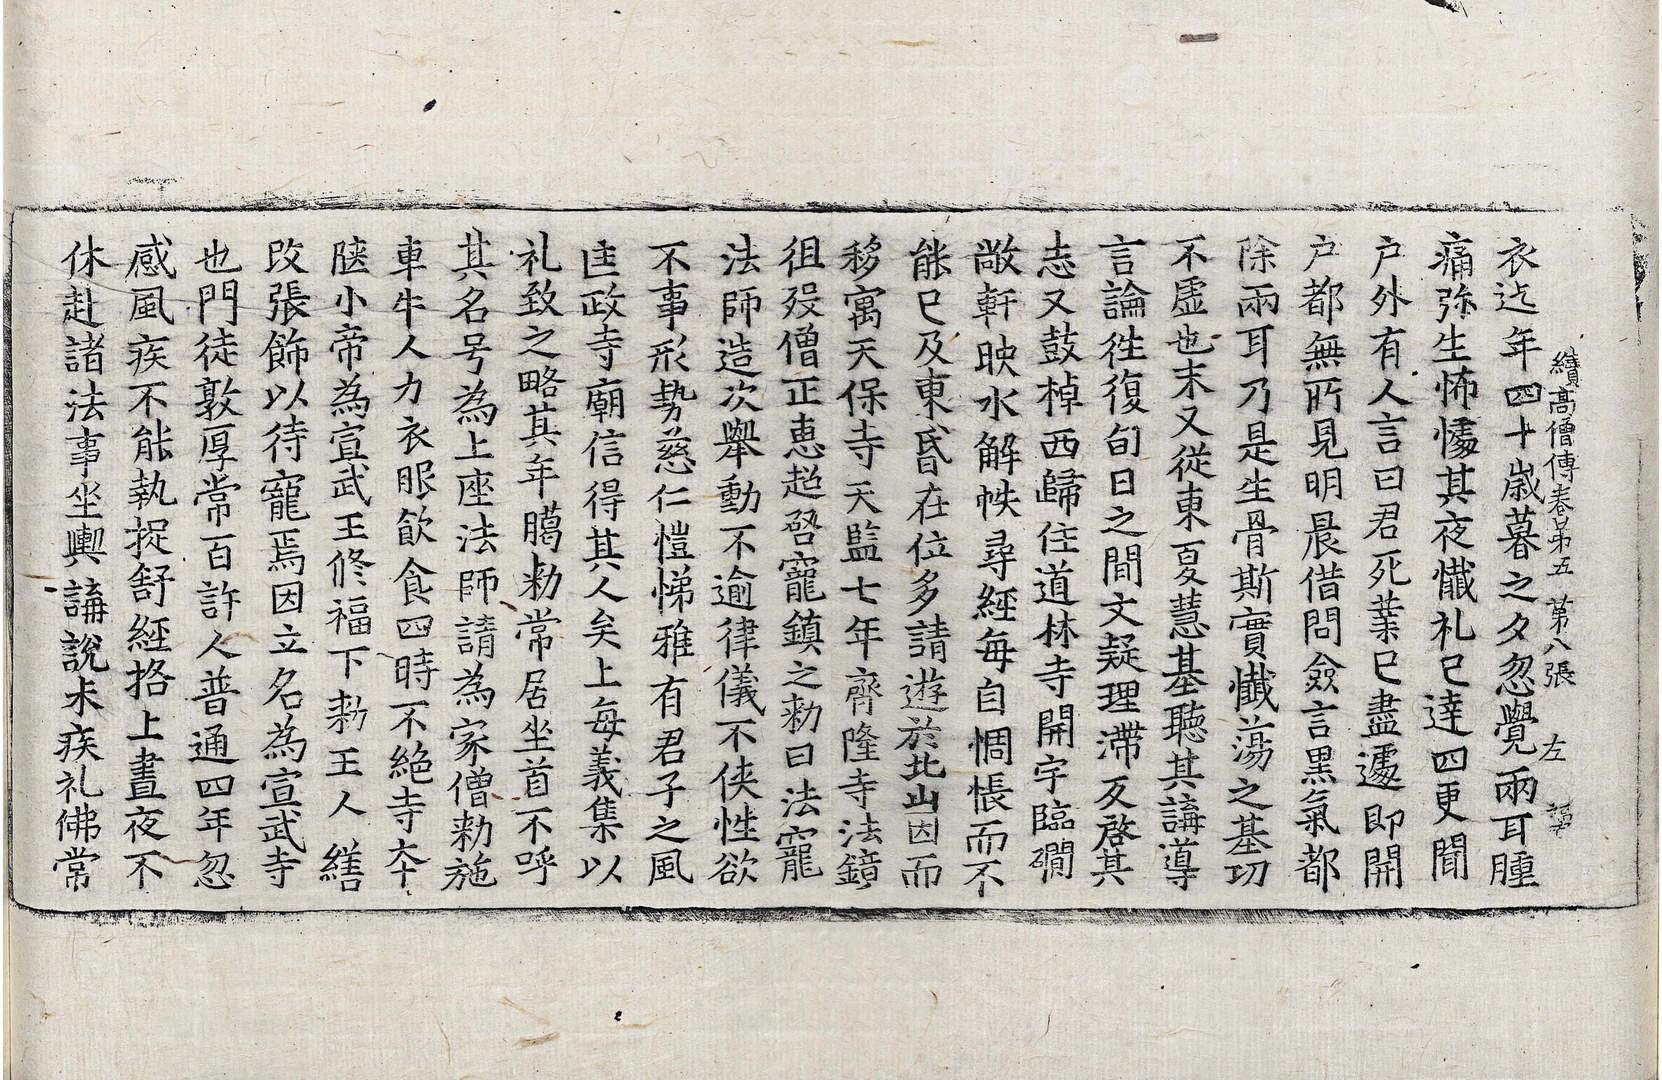 續高僧傳卷第五　第八張　左
衣迄年四十歲暮之夕忽覺兩耳腫
痛弥生怖懅其夜懺礼已達四更聞
户外有人言曰君死業已盡遽即開
户都無所見明晨借問僉言黑氣都
除兩耳乃是生骨斯實懺蕩之基功
不虛也末又從東夏慧基聽其講導
言論往復旬日之間文疑理滯反啓其
志又鼓棹西歸住道林寺開宇臨磵
敞軒映水解帙尋經每自惆悵而不
能已及東昏在位多請遊於北山因而
移寓天保寺天監七年齊隆寺法鏡
徂歿僧正惠超啓寵鎮之勑曰法寵
法師造次舉動不逾律儀不俠性欲
不事形勢慈仁愷悌雅有君子之風
匡政寺廟信得其人矣上每義集以
礼致之略其年臈勑常居坐首不呼
其名号為上座法師請為家僧勑施
車牛人力衣服飲食四時不絕寺本
陿小帝為宣武王修福下勑王人繕
改張飾以待寵焉因立名為宣武寺
也門徒敦厚常百許人普通四年忽
感風疾不能執捉舒經格上晝夜不
休赴諸法事坐輿講說未疾礼佛常